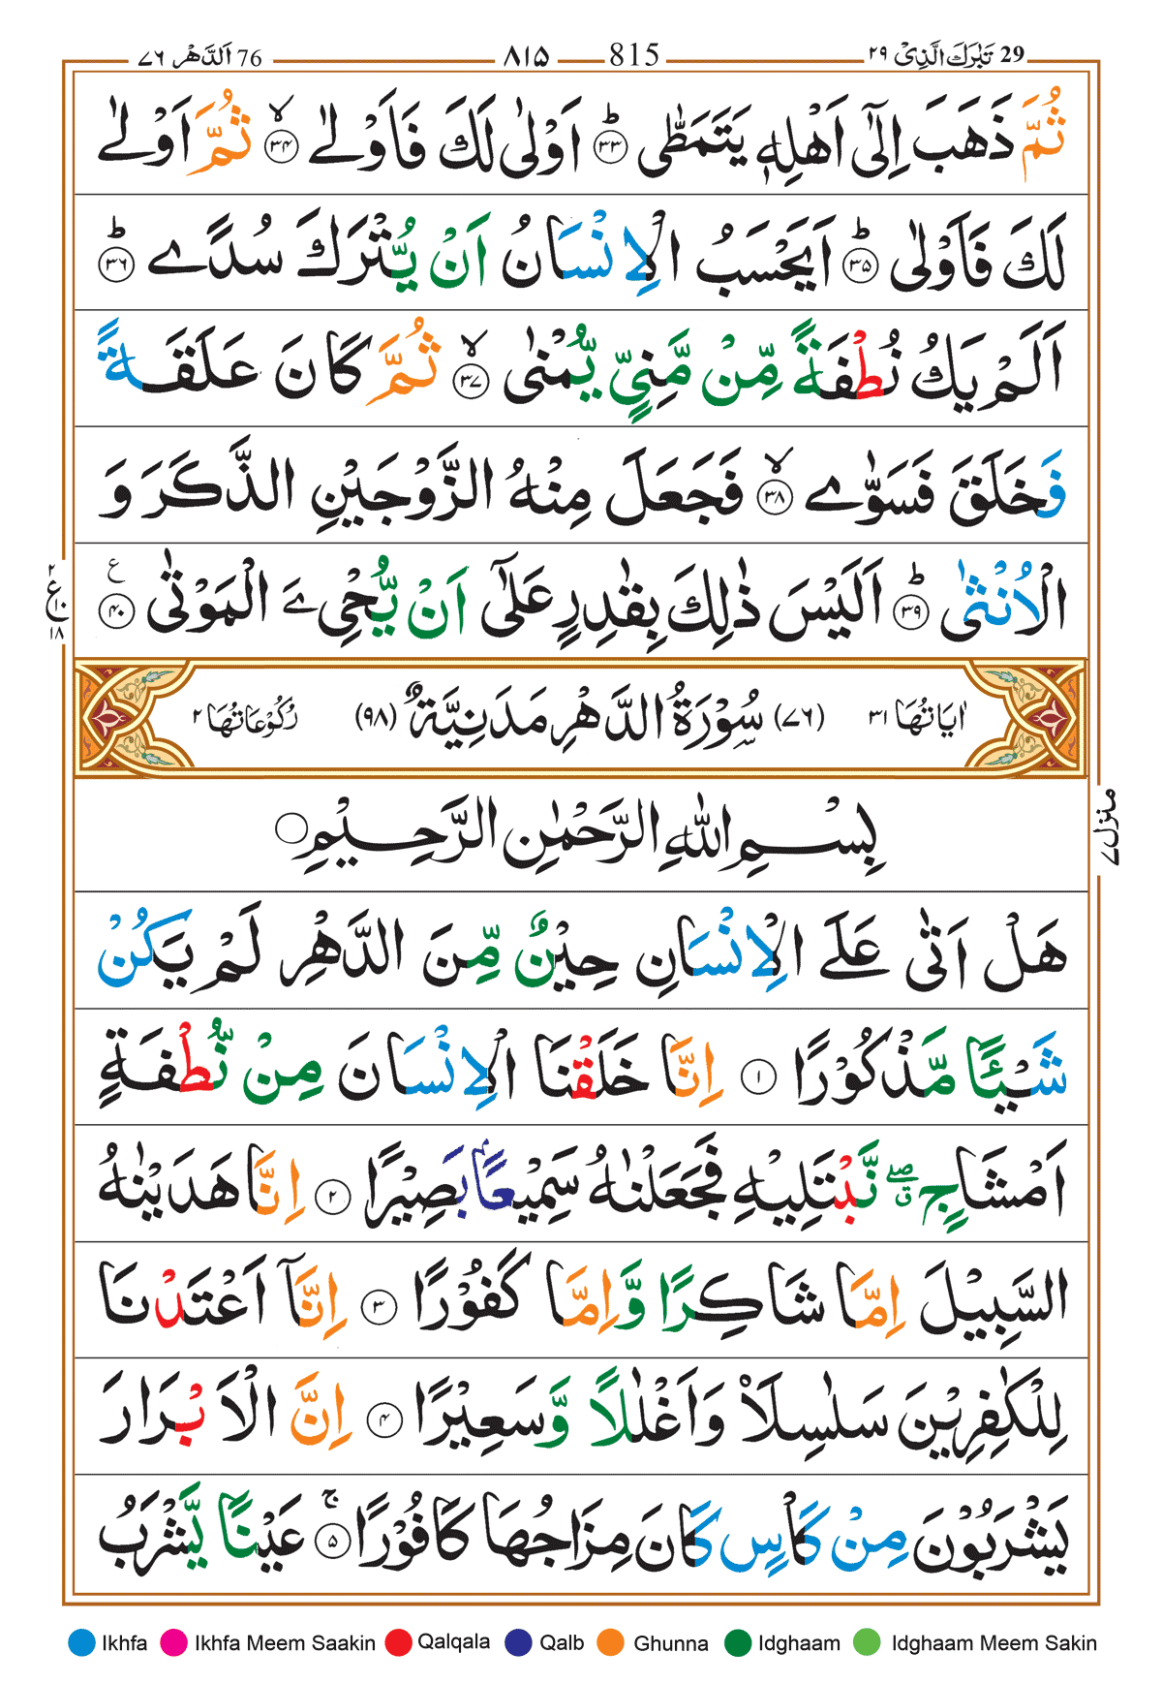 29 تَبٰرَكَ الَّذِيْ ٢٩ 815 ٨١٥ 76 اَلدَّهْر ٧٦
ثُمَّ ذَهَبَ اِلٰٓى اَهْلِهٖ يَتَمَطّٰى ؕ‏﴿۳۳﴾ اَوْلٰى لَكَ فَاَوْلٰى ۙ‏﴿۳۴﴾ ثُمَّ اَوْلٰى
لَكَ فَاَوْلٰى ؕ‏﴿۳۵﴾ اَيَحْسَبُ الْاِنْسَانُ اَنْ يُّتْرَكَ سُدًى ؕ‏﴿۳۶﴾
اَلَمْ يَكُ نُطْفَةً مِّنْ مَّنِىٍّ يُّمْنٰى ۙ‏﴿۳۷﴾ ثُمَّ كَانَ عَلَقَةً
فَخَلَقَ فَسَوّٰى ۙ‏﴿۳۸﴾ فَجَعَلَ مِنْهُ الزَّوْجَيْنِ الذَّكَرَ وَ
الْاُنْثٰى ؕ‏﴿۳۹﴾ اَلَيْسَ ذٰلِكَ بِقٰدِرٍ عَلٰٓى اَنْ يُّحْیِۦَ الْمَوْتٰى ﴿۴۰﴾ ع
٢
ع
١٠
١٨
اٰيَاتُهَا ٣١ (٧٦) سُوْرَةُ الدَّهْرِ مَدَنِيَّةٌ (٩٨) رُكُوْعَاتُهَا ٢
بِسْمِ اللّٰهِ الرَّحْمٰنِ الرَّحِيْمِ
منزل ٧
هَلْ اَتٰى عَلَى الْاِنْسَانِ حِيْنٌ مِّنَ الدَّهْرِ لَمْ يَكُنْ
شَيْـًٔا مَّذْكُوْرًا ﴿۱﴾ اِنَّا خَلَقْنَا الْاِنْسَانَ مِنْ نُّطْفَةٍ
اَمْشَاجٍ ۖۗ نَّبْتَلِيْهِ فَجَعَلْنٰهُ سَمِيْعًۢا بَصِيْرًا ﴿۲﴾ اِنَّا هَدَيْنٰهُ
السَّبِيْلَ اِمَّا شَاكِرًا وَّاِمَّا كَفُوْرًا ﴿۳﴾ اِنَّاۤ اَعْتَدْنَا
لِلْكٰفِرِيْنَ سَلٰسِلَا۟ وَاَغْلٰلًا وَّسَعِيْرًا ﴿۴﴾ اِنَّ الْاَبْرَارَ
يَشْرَبُوْنَ مِنْ كَاْسٍ كَانَ مِزَاجُهَا كَافُوْرًا ۚ‏﴿۵﴾ عَيْنًا يَّشْرَبُ
Ikhfa Ikhfa Meem Saakin Qalqala Qalb Ghunna Idghaam Idghaam Meem Sakin